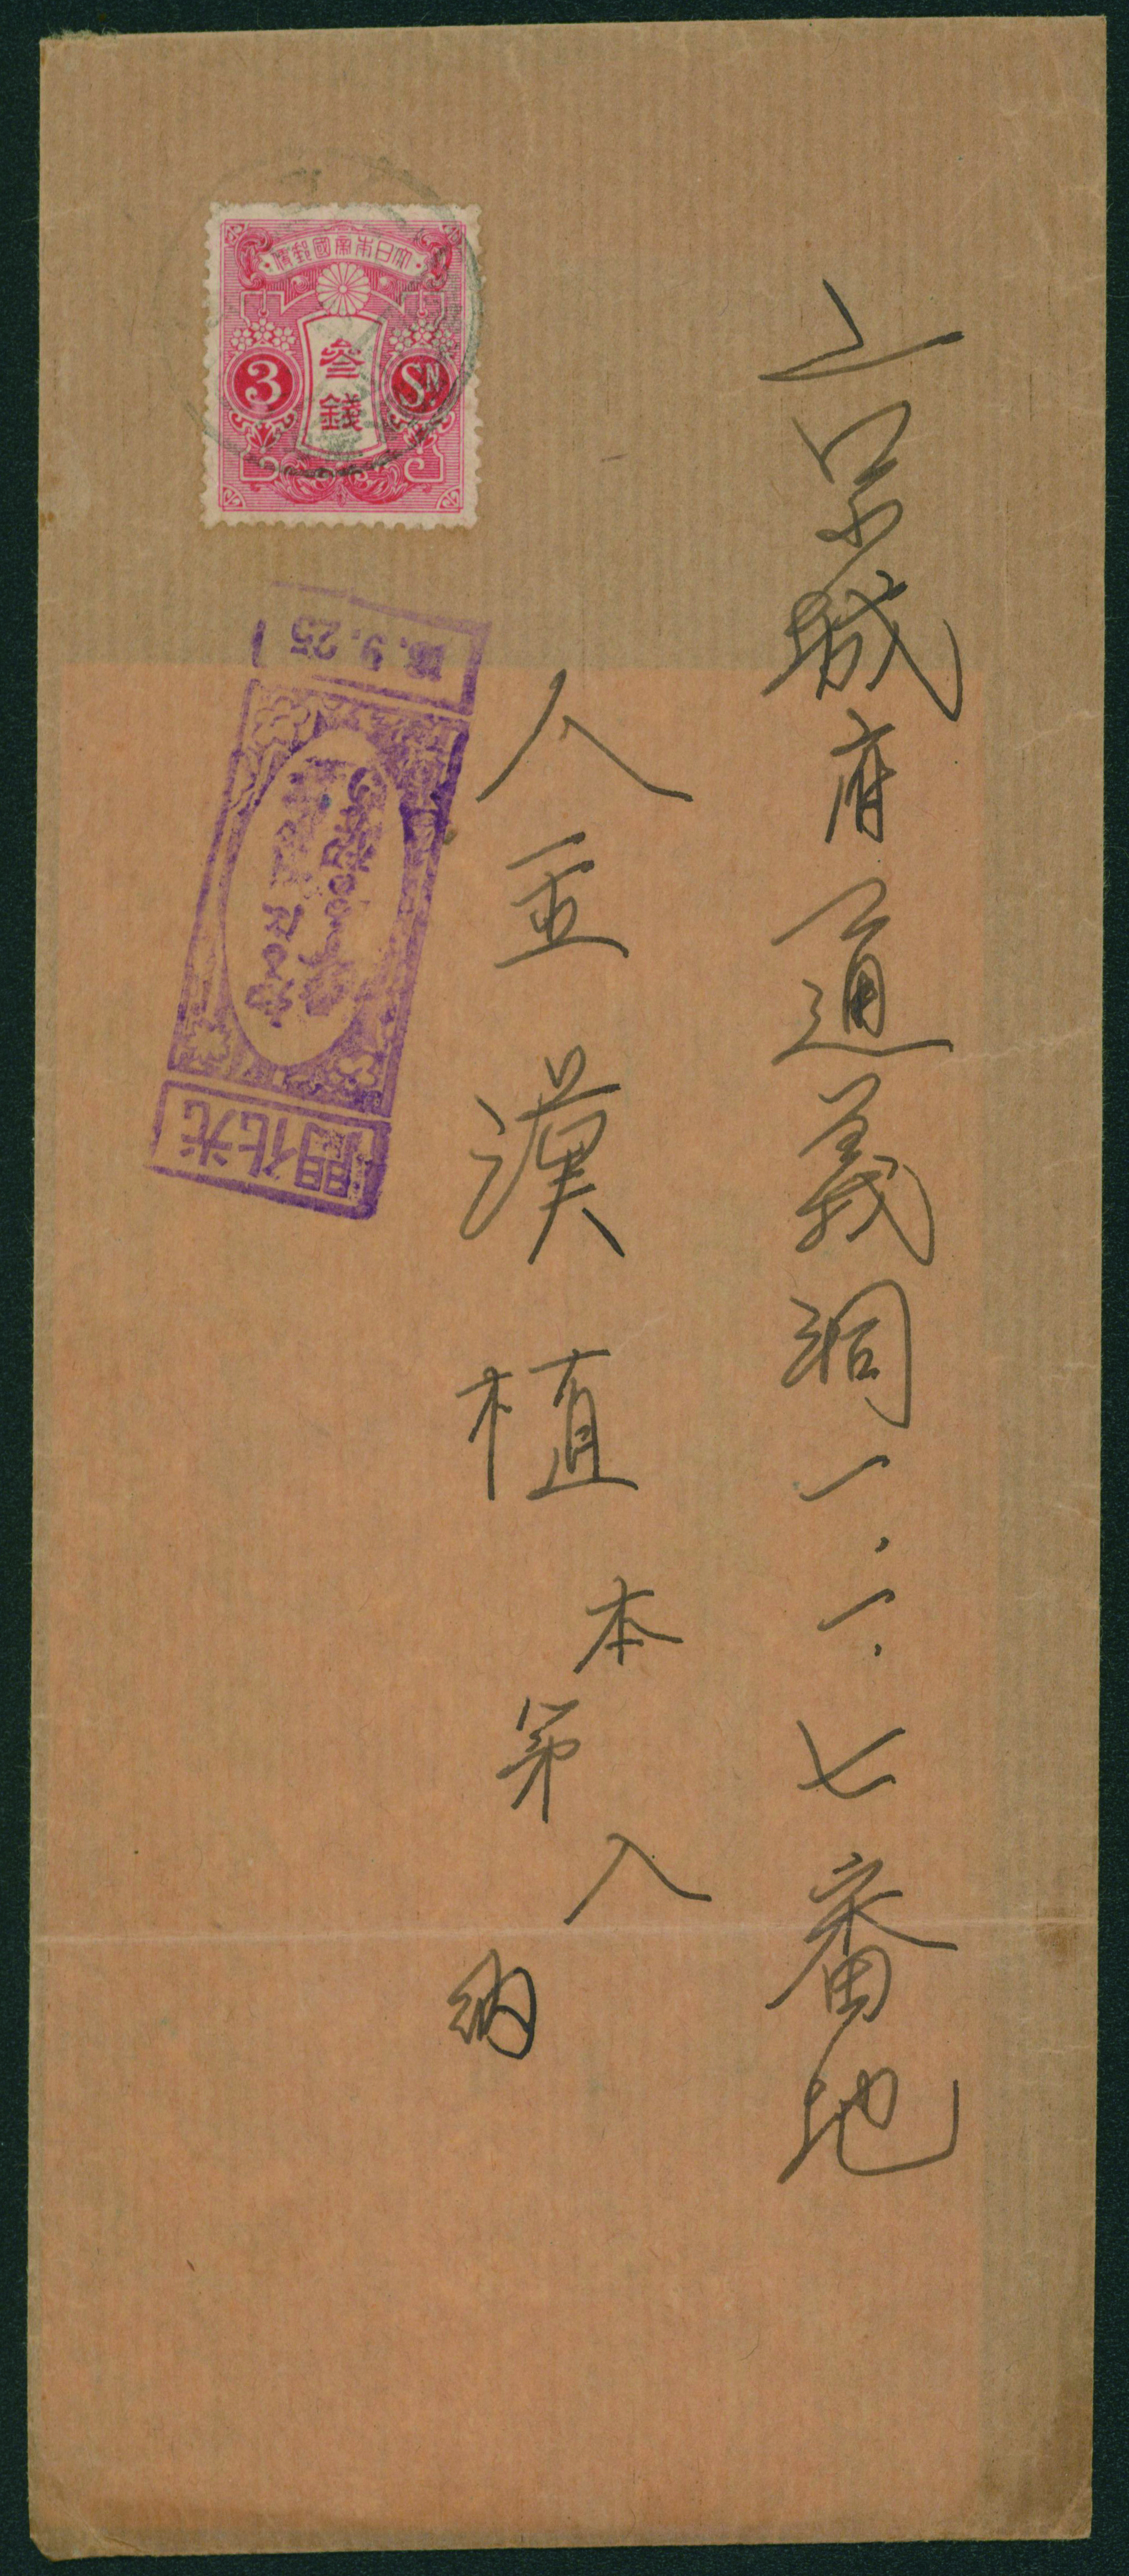 京城府通義洞一、一、七番地
金漢植本第入納
大日本帝國郵便
參錢
3 Sn.
光化門
9.25